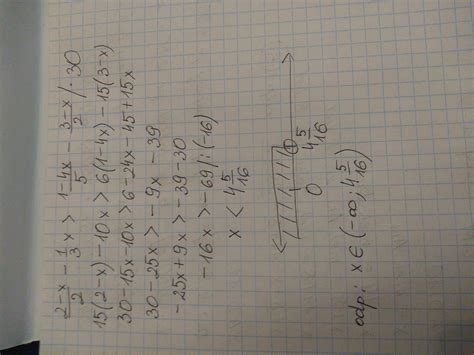 (2-x)/2 - 1/3 x > (1-4x)/5 - (3-x)/2 /·30
15(2-x)-10x > 6(1-4x)-15(3-x)
30-15x-10x > 6-24x-45+15x
30-25x > -9x-39
-25x+9x > -39-30
-16x > -69/:(-16)
x < 4 5/16
0 4 5/16
odp: x∈(-∞; 4 5/16)